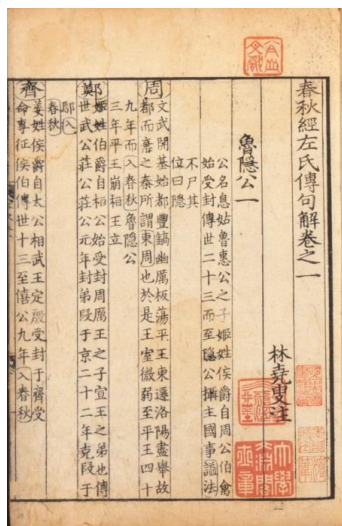 春秋經左氏傳句解卷之一
林堯叟注
魯隱公一
公名息姑魯惠公之子姬姓侯爵自周公伯禽
始受封傳世二十三而至隱公攝主國事諡法
不尸其
位曰隱
周
文武開基始都豐鎬幽厲板蕩平王東遷洛陽盡舉故
都而棄之秦所謂東周也於是王室微弱至平王四十
九年而入春秋魯隱公
三年平王崩桓王立
鄭
姬姓伯爵自桓公始受封周厲王之子宣王之弟也傳
世武公莊公莊公元年封弟段于京二十二年克段于
鄢入
春秋
齊
姜姓侯爵自太公相武王定殷受封于齊受
命專征侯伯傳世十三至僖公九年入春秋